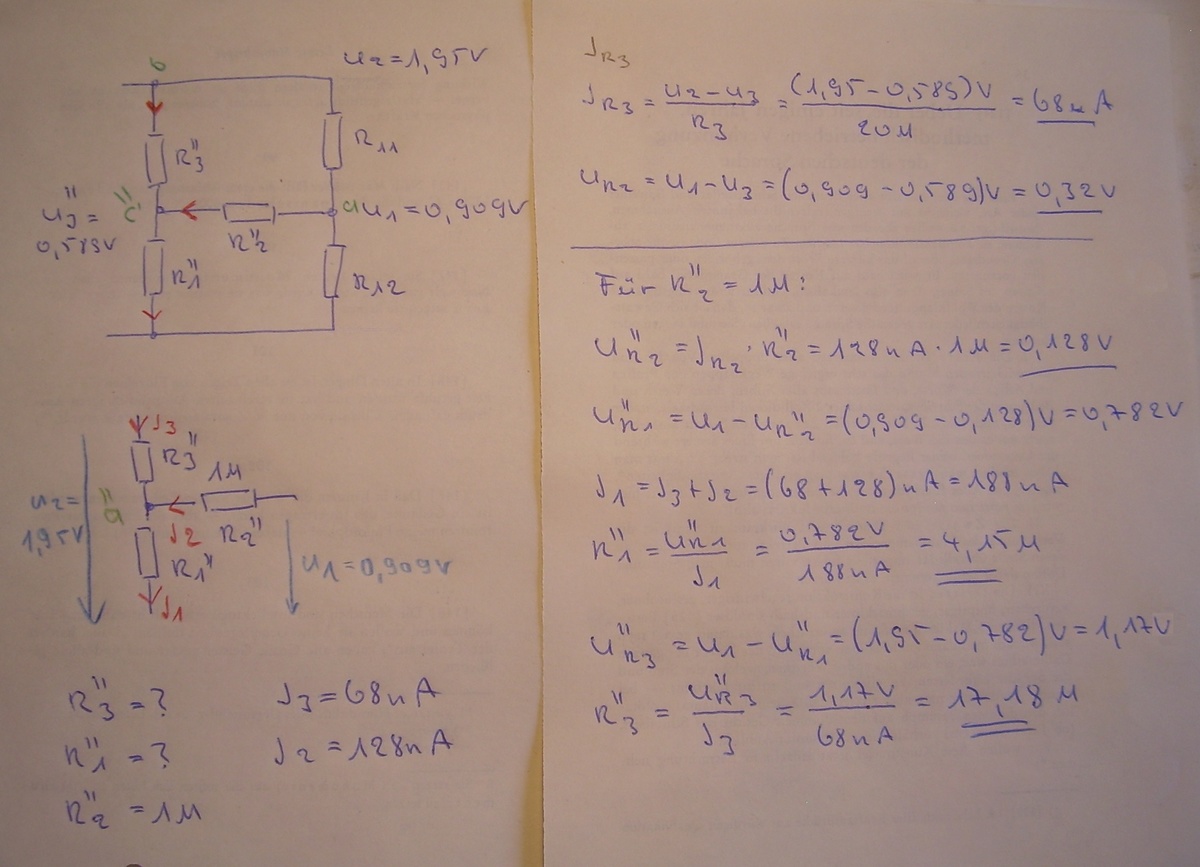 b
U2 = 1,95V
R3''
R11
U3'' =
0,589V
c''
a U1 = 0,909V
R2''
R1''
R12
J3
R3''
1M
U2 =
1,95V
a''
J2
R2''
R1''
U1 = 0,909V
J1
R3'' = ?
J3 = 68nA
R1'' = ?
J2 = 128nA
R2'' = 1M
JR3
JR3 = (U2 - U3) / R3 = (1,95 - 0,589)V / 20M = 68nA
UR2 = U1 - U3 = (0,909 - 0,589)V = 0,32V
Für R2'' = 1M:
UR2'' = JR2 · R2'' = 128nA · 1M = 0,128V
UR1'' = U1 - UR2'' = (0,909 - 0,128)V = 0,782V
J1 = J3 + J2 = (68 + 128)nA = 188nA
R1'' = UR1'' / J1 = 0,782V / 188nA = 4,15M
UR3'' = U1 - UR1'' = (1,95 - 0,782)V = 1,17V
R3'' = UR3'' / J3 = 1,17V / 68nA = 17,18M